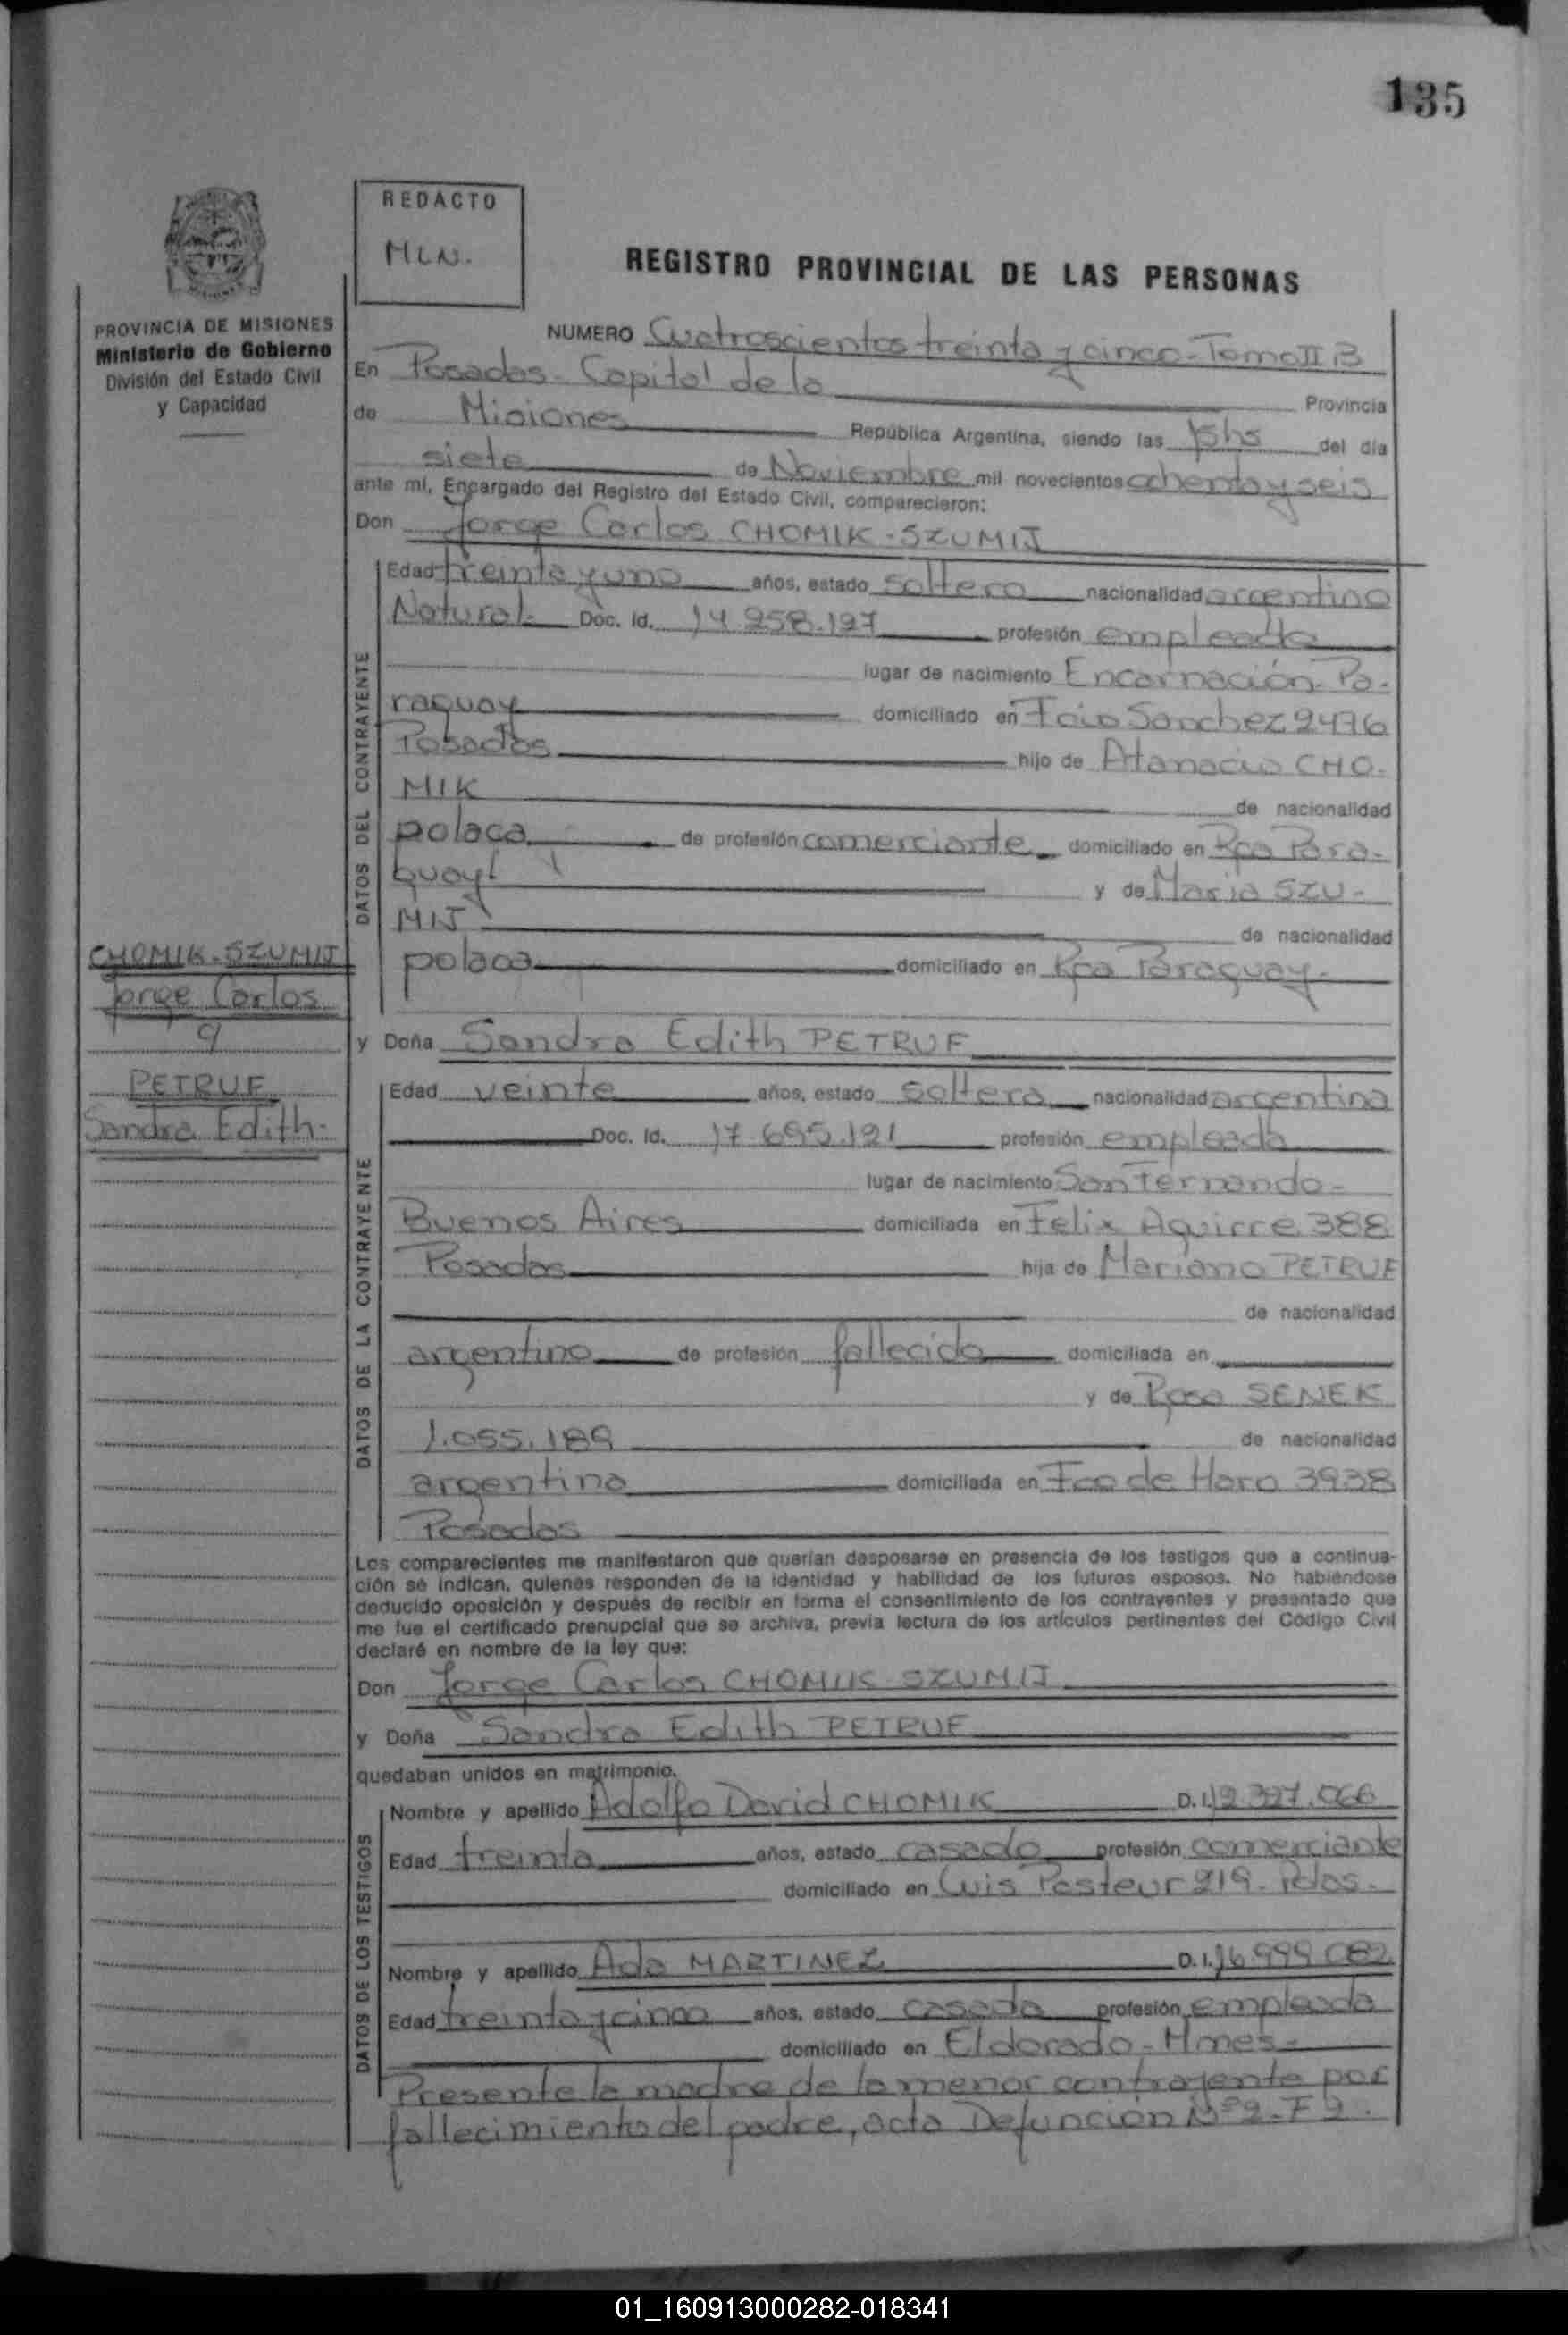 135
REDACTO
MLN.
REGISTRO PROVINCIAL DE LAS PERSONAS
PROVINCIA DE MISIONES
Ministerio de Gobierno
División del Estado Civil
y Capacidad
NUMERO Cuatroscientos treinta y cinco - Tomo II B
En Posadas - Capital de la Provincia
de Misiones República Argentina, siendo las hs del día
siete de Noviembre mil novecientos ochenta y seis
ante mí, Encargado del Registro del Estado Civil, comparecieron:
Don Jorge Carlos CHOMIK - SZUMIJ
DATOS DEL CONTRAYENTE
Edad treinta y uno años, estado soltero nacionalidad argentino
Natural. Doc. Id. 14.258.127 profesión empleado
lugar de nacimiento Encarnación - Pa-
raguay domiciliado en Fcio Sanchez 2476
Posadas hijo de Atanacio CHO-
MIK de nacionalidad
polaca de profesión comerciante domiciliado en Rca Para-
guay y de Maria SZU-
MIJ de nacionalidad
polaca domiciliado en Rca Paraguay -
CHOMIK - SZUMIJ
Jorge Carlos
y
PETRUF
Sandra Edith -
y Doña Sandra Edith PETRUF
DATOS DE LA CONTRAYENTE
Edad veinte años, estado soltera nacionalidad argentina
Doc. Id. 17.695.121 profesión empleada
lugar de nacimiento San Fernando -
Buenos Aires domiciliada en Felix Aguirre 388
Posadas hija de Mariano PETRUF
de nacionalidad
argentino de profesión fallecido domiciliada en
y de Rosa SENEK
1.055.189 de nacionalidad
argentina domiciliada en Fco de Haro 3938
Posadas
Los comparecientes me manifestaron que querían desposarse en presencia de los testigos que a continua-
ción se indican, quienes responden de la identidad y habilidad de los futuros esposos. No habiéndose
deducido oposición y después de recibir en forma el consentimiento de los contrayentes y presentado que
me fue el certificado prenupcial que se archiva, previa lectura de los artículos pertinentes del Código Civil
declaré en nombre de la ley que:
Don Jorge Carlos CHOMIK - SZUMIJ
y Doña Sandra Edith PETRUF
quedaban unidos en matrimonio.
DATOS DE LOS TESTIGOS
Nombre y apellido Adolfo David CHOMIK D.I. 12.327.066
Edad treinta años, estado casado profesión comerciante
domiciliado en Luis Pasteur 219 - Pdas -
Nombre y apellido Ada MARTINEZ D.I. 16.999.082
Edad treinta y cinco años, estado casada profesión empleada
domiciliado en Eldorado - Mnes -
Presente la madre de la menor contrayente por
fallecimiento del padre, acta Defunción Nº 2 - F 2.
01_160913000282-018341